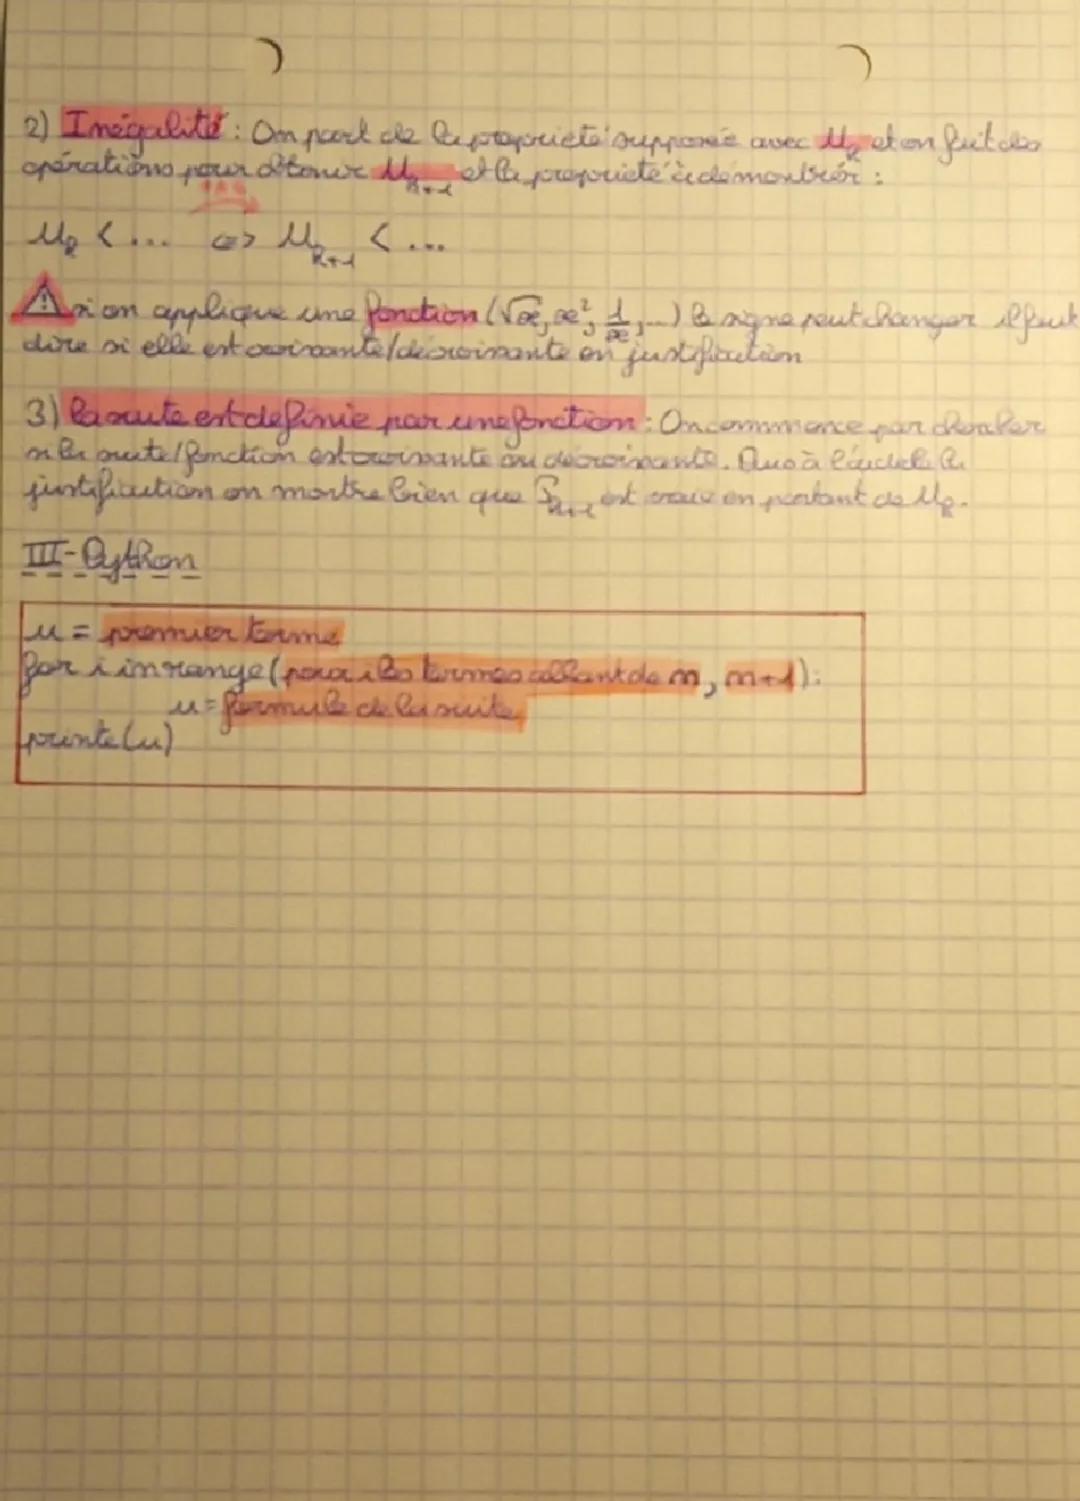 2) Inégalité : On part de la propriété supposée avec U_k et on fait des
opérations pour obtenir U_k+1 et la propriété à démontrer :
U_k < ... <=> U_k+1 < ...
⚠ si on applique une fonction (√x, x², 1/x, ...) le signe peut changer il faut
dire si elle est croissante/décroissante en justification
3) la suite est définie par une fonction : On commence par chercher
si la suite/fonction est croissante ou décroissante. Puis à l'aide de la
justification on montre bien que P_k+1 est vraie en partant de U_k.
III - Python
u = premier terme
for i in range (pour i les termes allant de n, n+1) :
u = formule de la suite
printe(u)